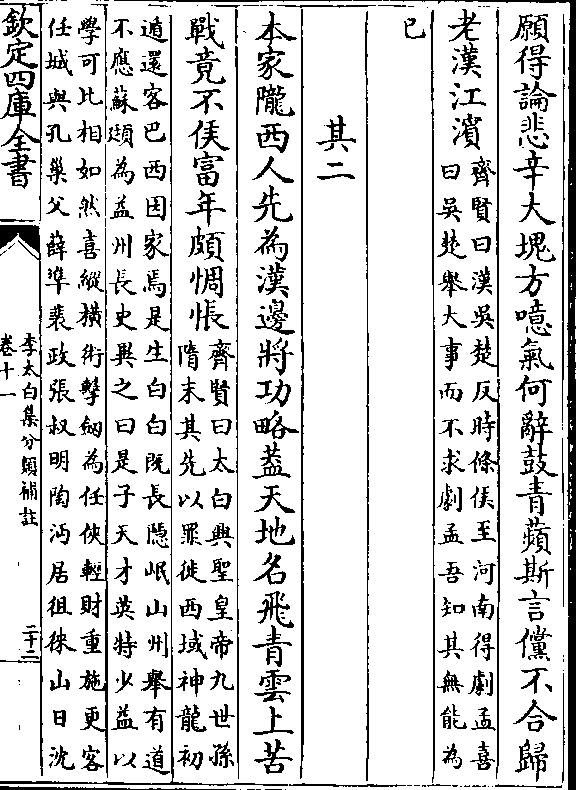 願得論悲辛大塊方噫氣何辭鼓青蘋斯言儻不合歸
老漢江濱
齊賢曰漢吳楚反時條侯至河南得劇孟喜
曰吳楚舉大事而不求劇孟吾知其無能為
已
其二
本家隴西人先為漢邊將功略葢天地名飛青雲上苦
戰竟不侯富年頗惆悵
齊賢曰太白興聖皇帝九世孫
隋末其先以罪徙西域神龍初
遁還客巴西因家焉是生白白既長隱岷山州舉有道
不應蘇頲為益州長史異之曰是子天才英特少益以
學可比相如然喜縱横術擊劒為任俠輕財重施更客
任城與孔巢父韓準裴政張叔明陶沔居徂徠山日沈
欽定四庫全書
李太白集分類補註
卷十一
二十二